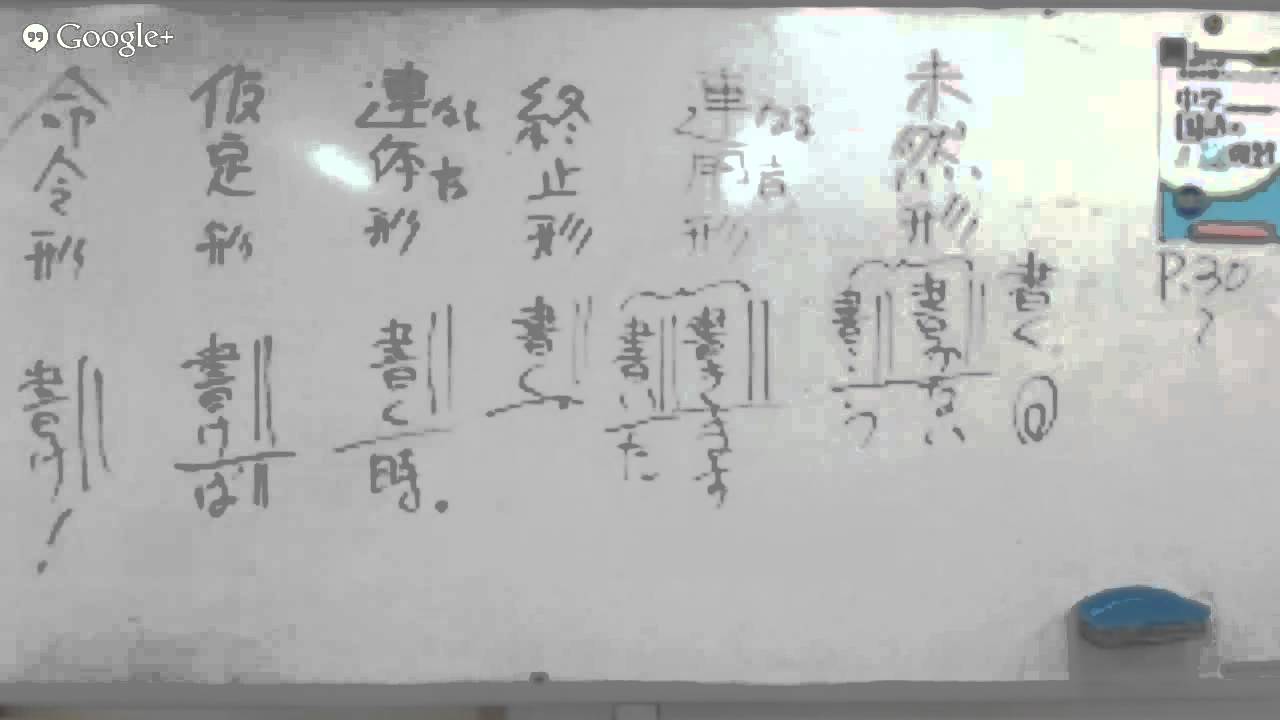 Google+
中学
P.30
書く
未然形
書かない
書こう
連用形
なる
言
書きます
書いた
終止形
書く
連体形
書く時。
仮定形
書けば
命令形
書け!